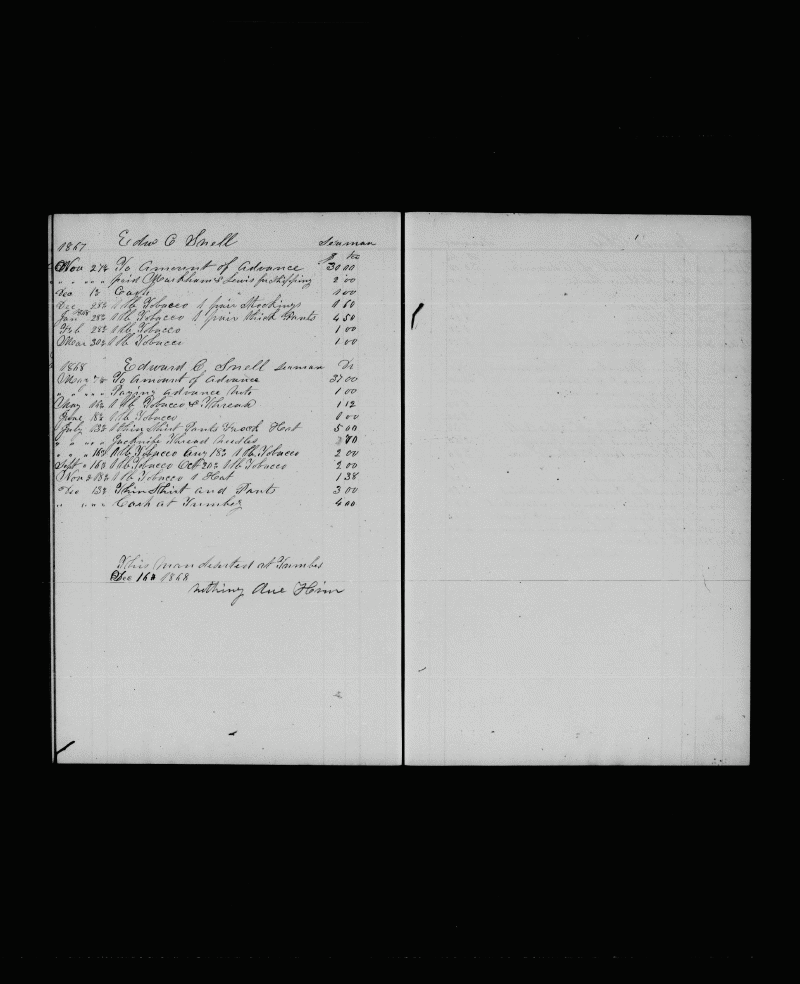 1867 Edw C Snell Seaman
$ cts
Nov 27th To Amount of Advance 30 00
" " " " paid Markham & Lewis for Shipping 2 00
Dec 1st Cash 1 00
Dec 28th 1 lb Tobacco 1 pair Stockings 1 60
Jan 1868 28th 1 lb Tobacco 1 pair thick Pants 4 50
Feb 28th 1 lb Tobacco 1 00
Mar 30th 1 lb Tobacco 1 00
1868 Edward C. Snell Seaman Dr
May To Amount of Advance 37 00
" " " " Paying Advance Note 1 00
May 1 lb Tobacco & Thread 1 12
June 18th 1 lb Tobacco 1 00
July 13th 1 thin Shirt Pants Frock Hat 5 00
" " " " Jacknife Thread Needles 80
" " " 16th 1 lb Tobacco Aug 18th 1 lb Tobacco 2 00
Sept " 16th 1 lb Tobacco Oct 20th 1 lb Tobacco 2 00
Nov 18th 1 lb Tobacco 1 Hat 1 38
Dec 13th Thin Shirt and Pants 3 00
" " " " Cash at Tumbez 4 00
This man deserted at Tumbes
Dec 16th 1868
nothing due Him